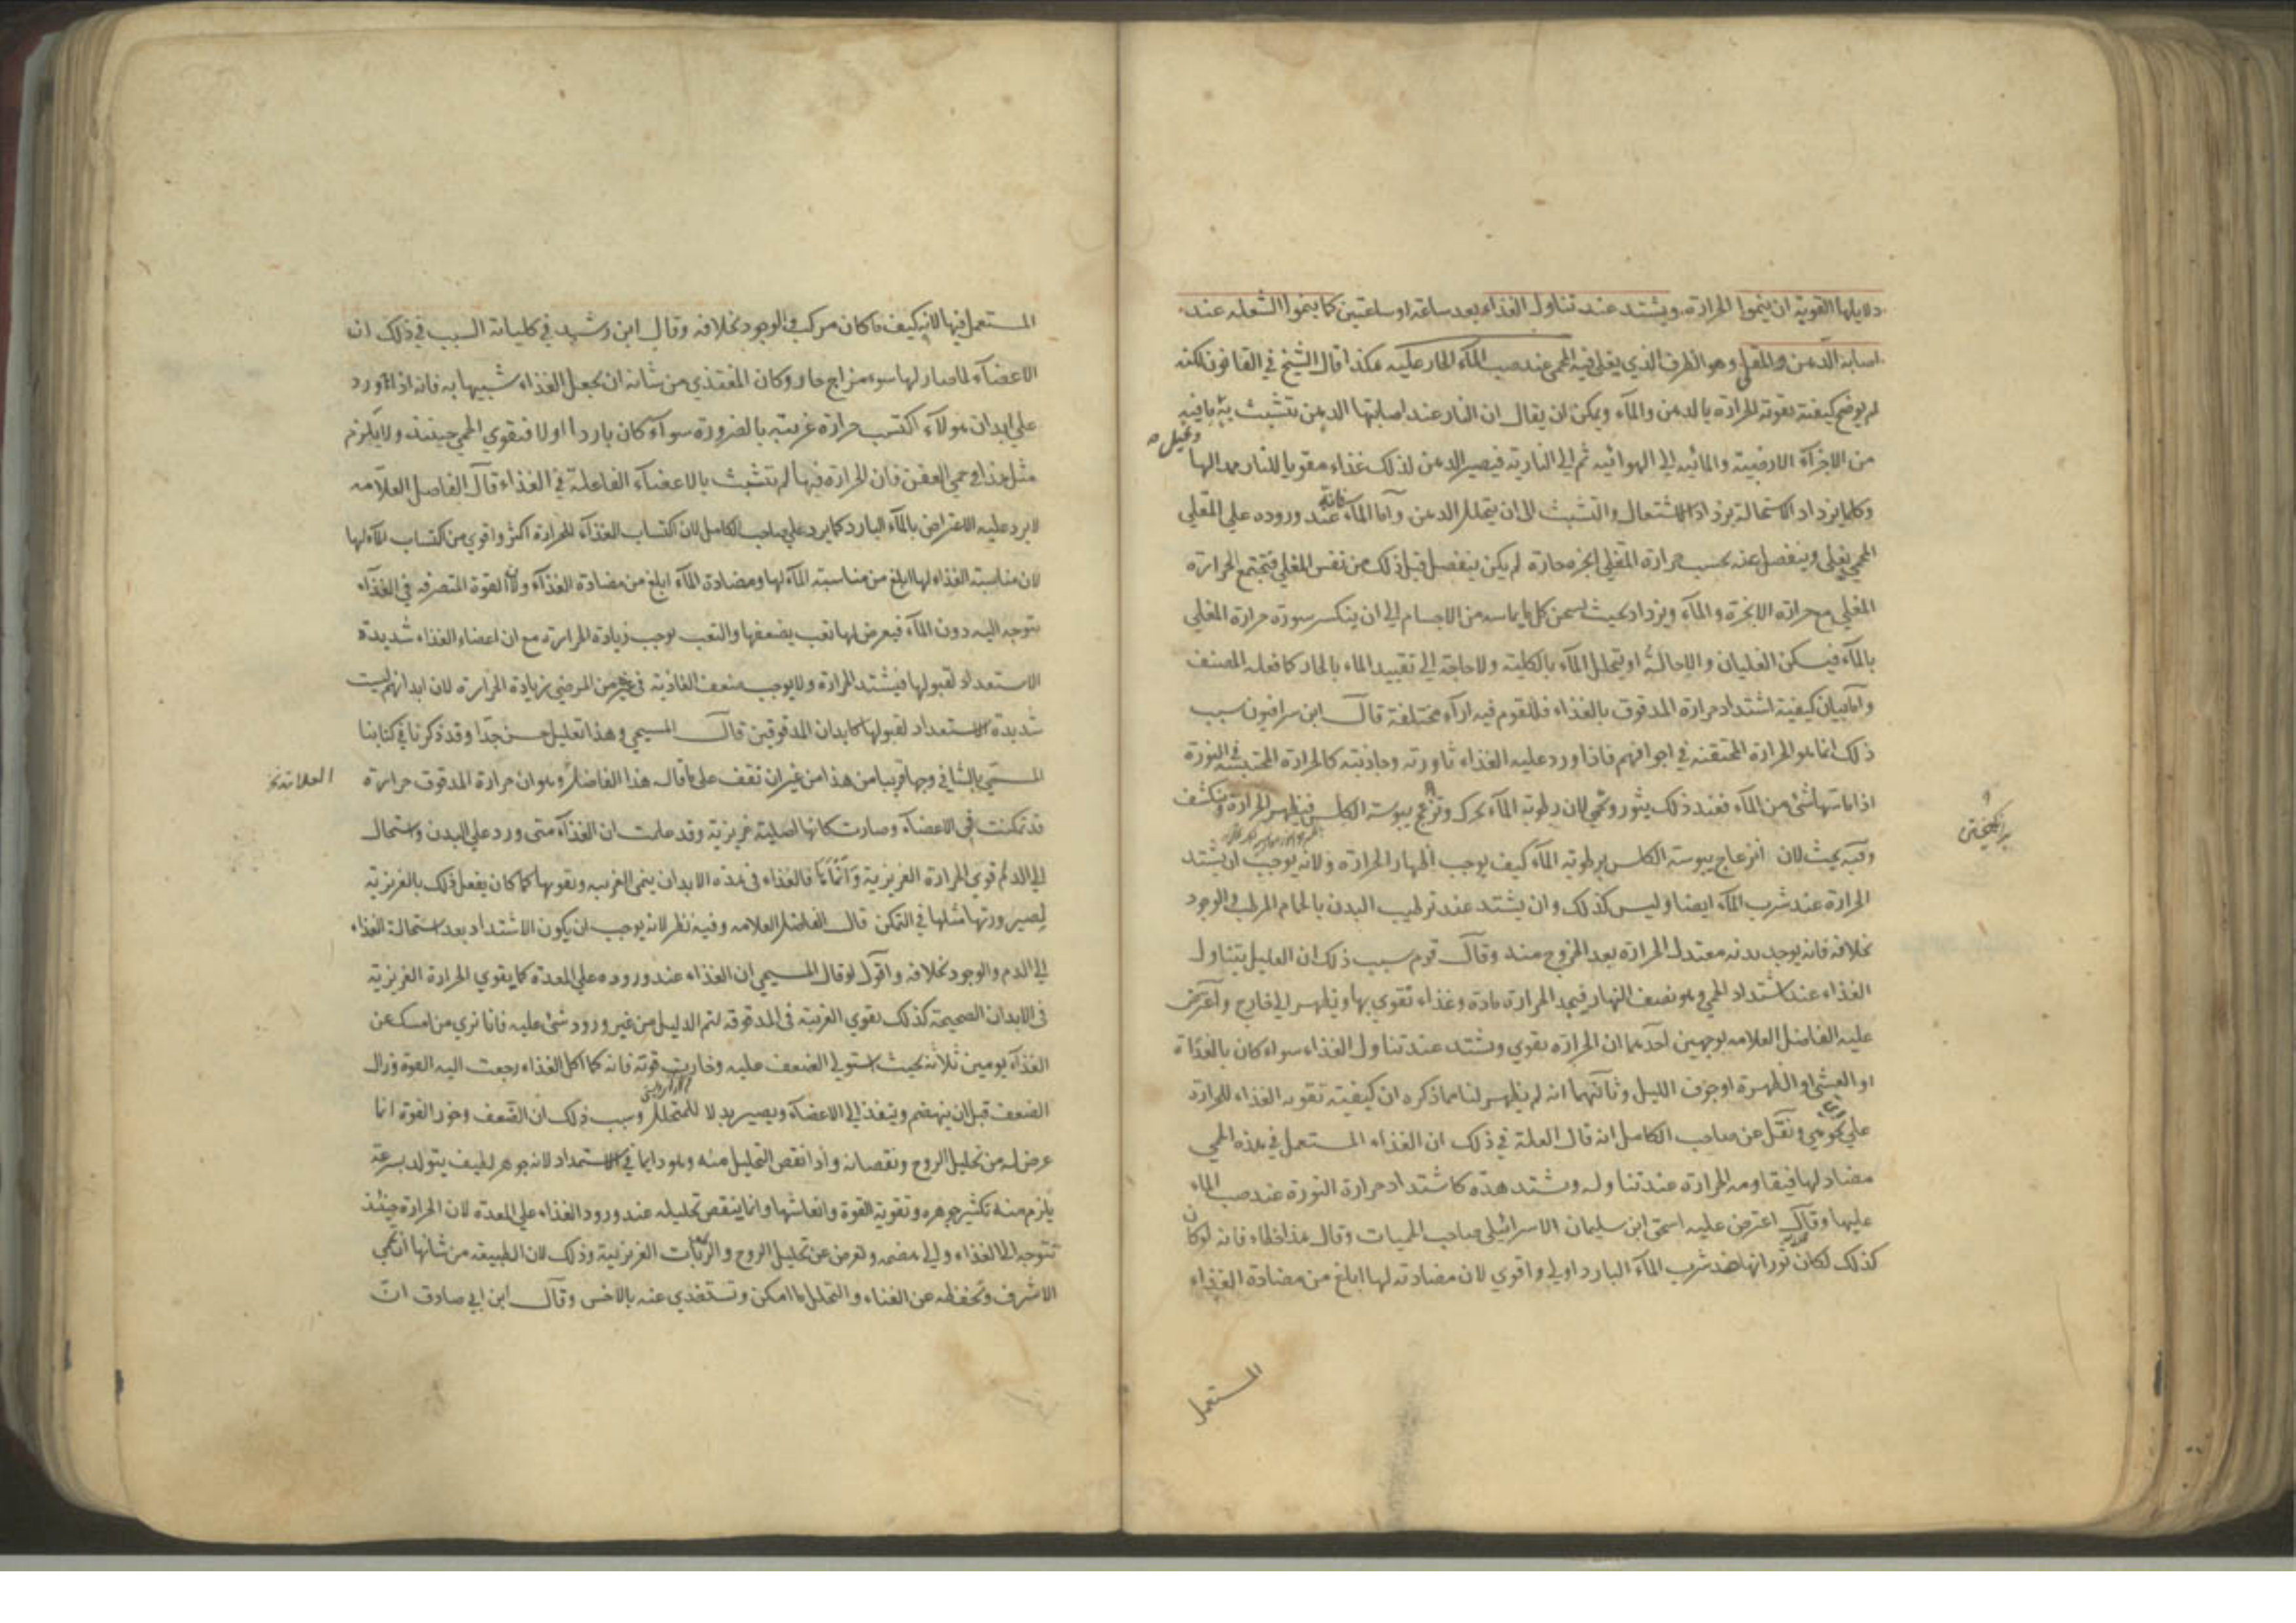 دلايلها القوية ان ينموا الحرارة ويشتد عند تناول الغذاء بعد ساعة او ساعتين كما ينموا الشعلة عند
اصابة الدهن والمقلي وهو الظرف الذي يغلي فيه المحمي عند صب الماء الحار عليه هكذا قال الشيخ في القانون لكنه
لم يوضح كيفية تقوية الحرارة بالدهن والماء ويمكن ان يقال ان النار عند اصابتها الدهن تتشبث به بما فيه
من الاجزاء الارضية والمائية الى الهوائية ثم الى النارية فيصير الدهن لذلك غذاء مقويا للنار ممدا لها
وتحيل
وكلما يزداد الاستحالة يزداد الاشتعال والتشبث الى ان يتحلل الدهن واما الماء فانه عند وروده على المقلي
المحمي يغلي وينفصل عنه بحسب حرارة المقلي ابخرة حارة لم يكن ينفصل قبل ذلك من نفس المقلي فتجتمع الحرارة
المقلي مع حرارة الابخرة والماء ويزداد بحيث يسخن كل ما يماسه من الاجسام الى ان ينكسر سورة حرارة المقلي
بالماء فيسكن الغليان والاحالة او يتحلل الماء بالكلية ولا حاجة الى تقييد الماء بالحار كما فعله المصنف
واما بيان كيفية اشتداد حرارة المدقوق بالغذاء فللقوم فيه اراء مختلفة قال ابن سرافيون سبب
ذلك انما هو الحرارة المحتقنة في اجوافهم فاذا ورد عليه الغذاء ثاورته وجاذبته كالحرارة المحتبسة في النورة
اذا ماستها شئ من الماء فعند ذلك يثور وتحمي لان رطوبة الماء يحرك وتزعج يبوسة الكلس فيظهر الحرارة وينكشف
برانكيختن
وفيه بحث لان انزعاج يبوسة الكلس برطوبة الماء كيف يوجب اظهار الحرارة ولانه يوجب ان يشتد
الحرارة عند شرب الماء ايضا وليس كذلك وان يشتد عند ترطيب البدن بالحمام المرطب والوجود
بخلافه فانه يوجد بدنه معتدل الحرارة بعد الخروج منه وقال قوم سبب ذلك ان العليل يتناول
الغذاء عند اشتداد الحمي وهو نصف النهار فيجد الحرارة مادة وغذاء تقوي بها ويظهر الى خارج واعترض
عليه الفاضل العلامة بوجهين احدهما ان الحرارة يقوي ويشتد عند تناول الغذاء سواء كان بالغداة
او العشي او الظهيرة او جوف الليل وثانيهما انه لم يظهر لنا مما ذكره ان كيفية تقوية الغذاء للحرارة
على اي نحو هي ونقل عن صاحب الكامل انه قال العلة في ذلك ان الغذاء المستعمل في هذه الحمي
مضاد لها فيقاومه الحرارة عند تناوله ويشتد هذه كاشتداد حرارة النورة عند صب الماء
عليها وقال اعترض عليه اسحق ابن سليمان الاسرائيلي صاحب الحميات وقال هذا خطاء فانه لو كان
كذلك لكان ثورانها عند شرب الماء البارد اولي واقوي لان مضادته لها ابلغ من مضادة الغذاء
المستعمل
المستعمل فيها لانه كيف ما كان مركب والوجود بخلافه وقال ابن رشد في كلياته السبب في ذلك ان
الاعضاء لما صار لها سوء مزاج حار وكان المغتذي من شانه ان يجعل الغذاء شبيها به فانه اذا ورد
على ابدان هولاء اكتسب حرارة غريبة بالضرورة سواء كان باردا اولا فتقوي الحمي حينئذ ولا يلزم
مثل هذا في حمي العفن فان الحرارة فيها لم تتشبث بالاعضاء الفاعلة في الغذاء قال الفاضل العلامة
لا يرد عليه الاعتراض بالماء البارد كما يرد على صاحب الكامل لان اكتساب الغذاء للحرارة اكثر واقوي من اكتساب الماء لها
لان مناسبة الغذاء لها ابلغ من مناسبة الماء لها ومضادة الماء ابلغ من مضادة الغذاء ولان القوة المتصرفة في الغذاء
يتوجه اليه دون الماء فيعرض لها تعب يضعفها والتعب يوجب زيادة الحرارة مع ان اعضاء الغذاء شديدة
الاستعداد لقبولها فيشتد الحرارة ولا يوجب ضعف الغاذية في غيره من المرضي زيادة الحرارة لان ابدانهم ليست
شديدة الاستعداد لقبولها كابدان المدقوقين قال المسيحي وهذا تعليل حسن جدا وقد ذكرنا في كتابنا
المسمي بالشافي وجها قريبا من هذا من غير ان نقف على ما قاله هذا الفاضل وهو ان حرارة المدقوق حرارة
قد تمكنت في الاعضاء وصارت كانها اصلية غريزية وقد علمت ان الغذاء متى ورد على البدن واستحال
الى الدم قوي الحرارة الغريزية واما هنا فالغذاء في هذه الابدان ينمي الغريبة ويقويها كما كان يفعل ذلك بالغريزية
لصيرورتها مثلها في التمكن قال الفاضل العلامة وفيه نظر لانه يوجب ان يكون الاشتداد بعد استحالة الغذاء
الى الدم والوجود بخلافه واقول لو قال المسيحي ان الغذاء عند وروده على المعدة كما يقوي الحرارة الغريزية
في الابدان الصحيحة كذلك يقوي الغريبة في المدقوقة لتم الدليل من غير ورود شئ عليه فانا نري من امسك عن
الغذاء يومين ثلاثة بحيث استولي الضعف عليه وخارت قوته فانه كما اكل الغذاء رجعت اليه القوة وزال
الضعف قبل ان ينهضم وينفذ الى الاعضاء ويصير بدلا للمتحلل وسبب ذلك ان الضعف وخور القوة انما
عرض له من تحليل الروح ونقصانه واذا نقص التحليل منه وهو دايما في الاستمداد لانه جوهر لطيف يتولد بسرعة
يلزم منه تكثير جوهره وتقوية القوة وانعاشها وانما ينقص تحليله عند ورود الغذاء على المعدة لان الحرارة حينئذ
تتوجه الى الغذاء والى هضمه وتعرض عن تحليل الروح والرطوبات الغريزية وذلك لان الطبيعة من شانها ان تحمي
الاشرف وتحفظه عن الفناء والتحلل ما امكن وتستغذي عنه بالاخس وقال ابن ابي صادق ان